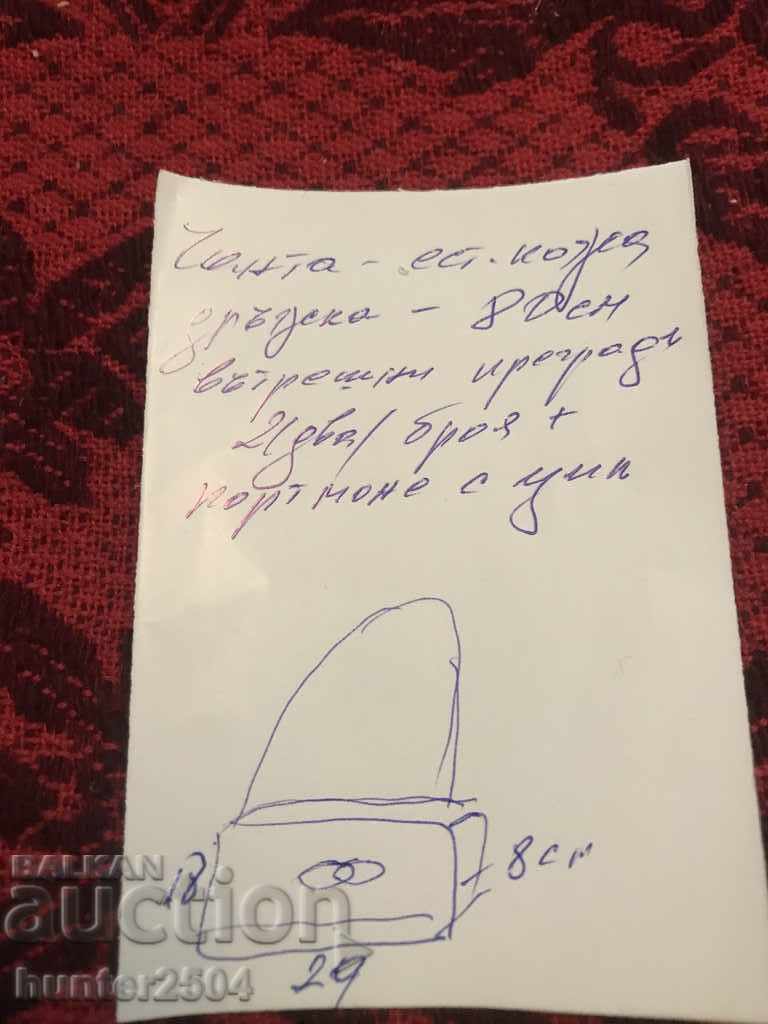 Чанта - ест. кожа
дръжка - 80 см
вътрешни прегради
2/два/ броя +
портмоне с цип
18
8 см
29
BALKAN
auction
hunter2504